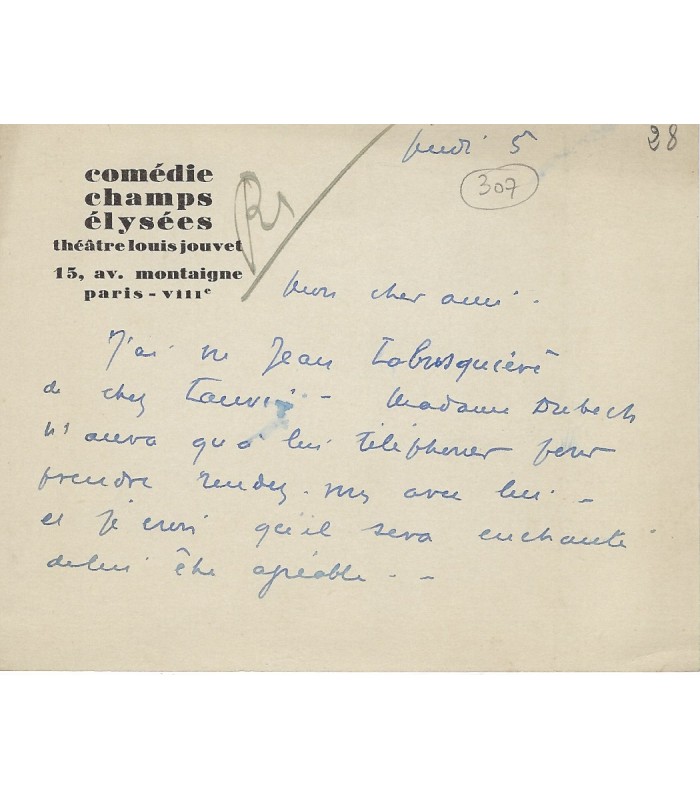 jeudi 5
28
307
comédie
champs
élysées
théâtre louis jouvet
15, av. montaigne
paris - VIIIe
Mon cher ami -
J'ai vu Jean
de chez - Madame Dubech
n'aura qu'à lui téléphoner pour
prendre rendez-vous avec lui -
et je crois qu'il sera enchanté
de lui être agréable - -